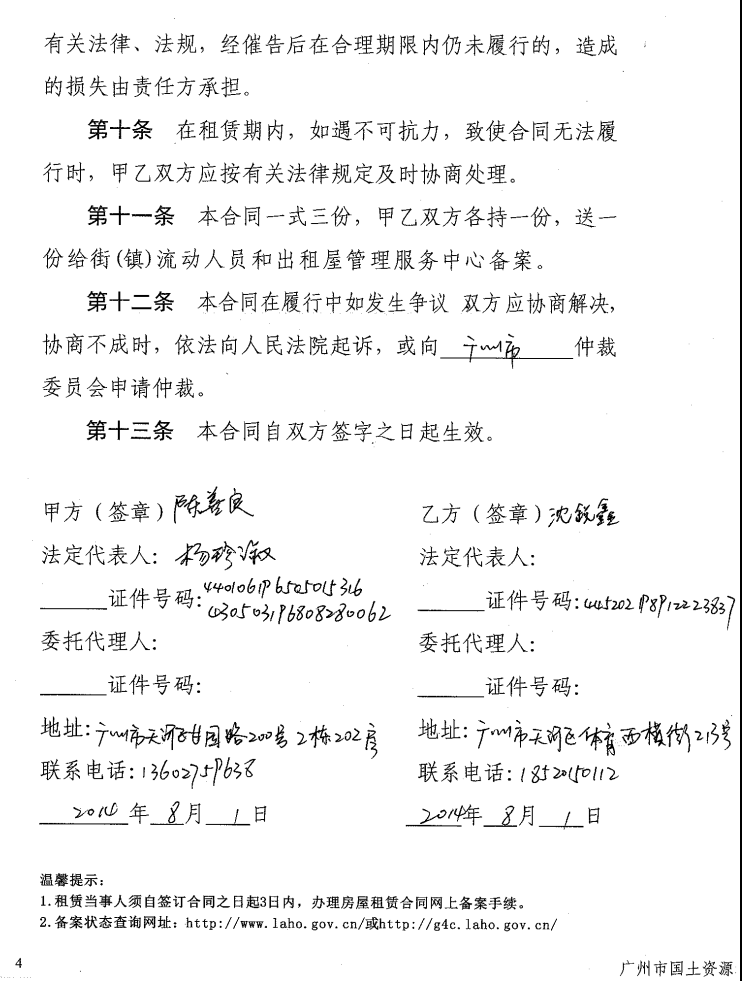 有关法律、法规，经催告后在合理期限内仍未履行的，造成
的损失由责任方承担。
第十条 在租赁期内，如遇不可抗力，致使合同无法履
行时，甲乙双方应按有关法律规定及时协商处理。
第十一条 本合同一式三份，甲乙双方各持一份，送一
份给街(镇)流动人员和出租屋管理服务中心备案。
第十二条 本合同在履行中如发生争议 双方应协商解决，
协商不成时，依法向人民法院起诉，或向 广州市 仲裁
委员会申请仲裁。
第十三条 本合同自双方签字之日起生效。
甲方（签章）陈善良 乙方（签章）沈锐鑫
法定代表人：杨珍淑 法定代表人：
______证件号码：440106196505015316 ______证件号码：445202198912223837
430503196808280062
委托代理人： 委托代理人：
______证件号码： ______证件号码：
地址：广州市天河区甘园路200号2栋202房 地址：广州市天河区体育西横街213号
联系电话：13602759638 联系电话：18520150112
2014 年 8 月 1 日 2014年 8 月 1 日
温馨提示：
1.租赁当事人须自签订合同之日起3日内，办理房屋租赁合同网上备案手续。
2.备案状态查询网址：http://www.laho.gov.cn/或http://g4c.laho.gov.cn/
4 广州市国土资源